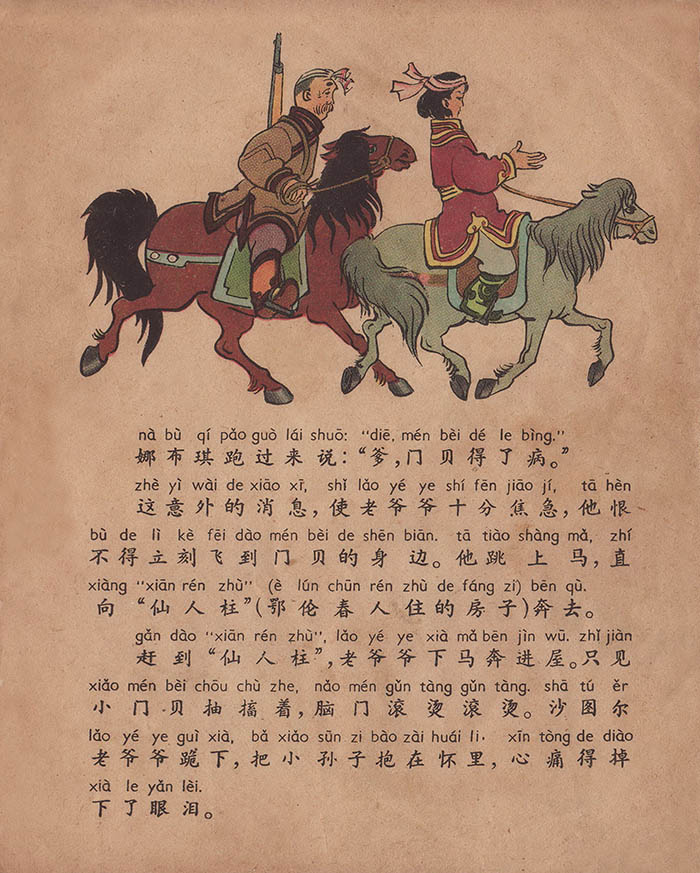 nà bù qí pǎo guò lái shuō: “diē, mén bèi dé le bìng.”
娜布琪跑过来说：“爹，门贝得了病。”
zhè yì wài de xiāo xī, shǐ lǎo yé ye shí fēn jiāo jí, tā hèn
这意外的消息，使老爷爷十分焦急，他恨
bù de lì kè fēi dào mén bèi de shēn biān. tā tiào shàng mǎ, zhí
不得立刻飞到门贝的身边。他跳上马，直
xiàng “xiān rén zhù” (è lún chūn rén zhù de fáng zi) bēn qù.
向“仙人柱”(鄂伦春人住的房子)奔去。
gǎn dào “xiān rén zhù”, lǎo yé ye xià mǎ bēn jìn wū. zhǐ jiàn
赶到“仙人柱”，老爷爷下马奔进屋。只见
xiǎo mén bèi chōu chù zhe, nǎo mén gǔn tàng gǔn tàng. shā tú ěr
小门贝抽搐着，脑门滚烫滚烫。沙图尔
lǎo yé ye guì xià, bǎ xiǎo sūn zi bào zài huái li. xīn tòng de diào
老爷爷跪下，把小孙子抱在怀里，心痛得掉
xià le yǎn lèi.
下了眼泪。